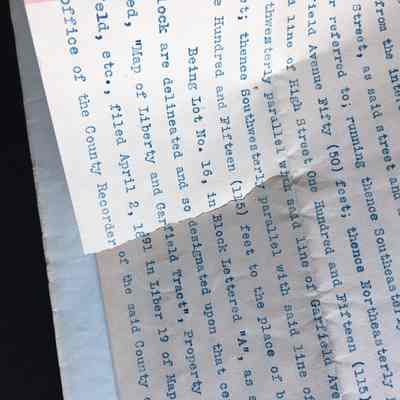 from the inter
Street, as said street and
r referred to; running thence Southeasterly
field Avenue Fifty (50) feet; thence Northeasterly
d line of High Street One Hundred and Fifteen (115)
thwesterly parallel with said line of Garfield Ave
t; thence Southwesterly parallel with said line of
e Hundred and Fifteen (115) feet to the place of b
Being Lot No. 16, in Block Lettered "A", as s
lock are delineated and so designated upon that ce
ed, "Map of Liberty and Garfield Tract", Property
eld, etc., filed April 2, 1891 in Liber 19 of Map
Office of the County Recorder of the said County